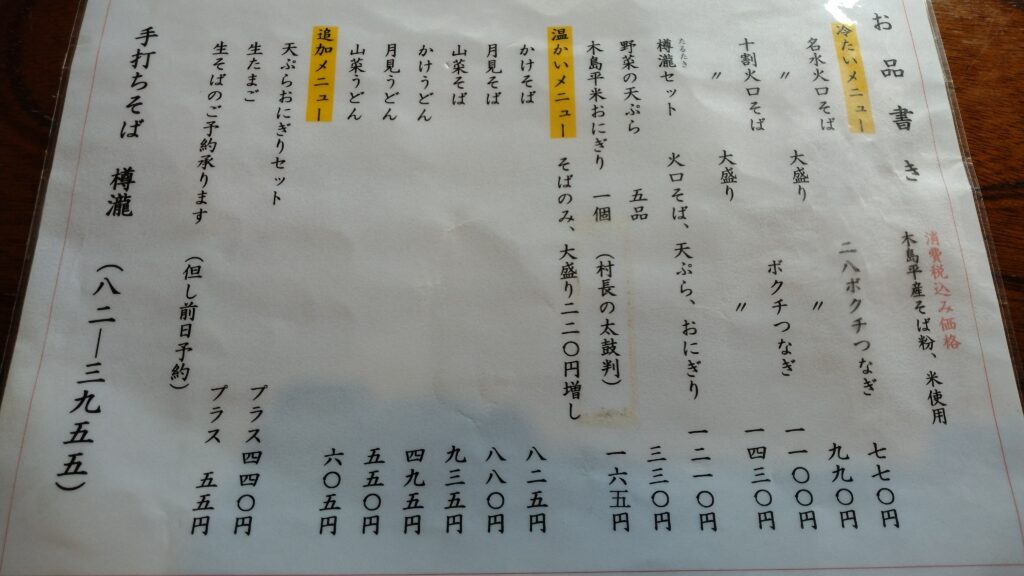 お品書き
消費税込み価格
木島平産そば粉、米使用
冷たいメニュー
名水火口そば 二八ボクチつなぎ 七七〇円
〃 大盛り 〃 九九〇円
十割火口そば ボクチつなぎ 一一〇〇円
〃 大盛り 〃 一四三〇円
たるたき
樽瀧セット 火口そば、天ぷら、おにぎり 一二一〇円
野菜の天ぷら 五品 三三〇円
木島平米おにぎり 一個 (村長の太鼓判) 一六五円
温かいメニュー そばのみ、大盛り二二〇円増し
かけそば 八二五円
月見そば 八八〇円
山菜そば 九三五円
かけうどん 四九五円
月見うどん 五五〇円
山菜うどん 六〇五円
追加メニュー
天ぷらおにぎりセット プラス四四〇円
生たまご プラス 五五円
生そばのご予約承ります (但し前日予約)
手打ちそば 樽瀧 (八二―三九五五)